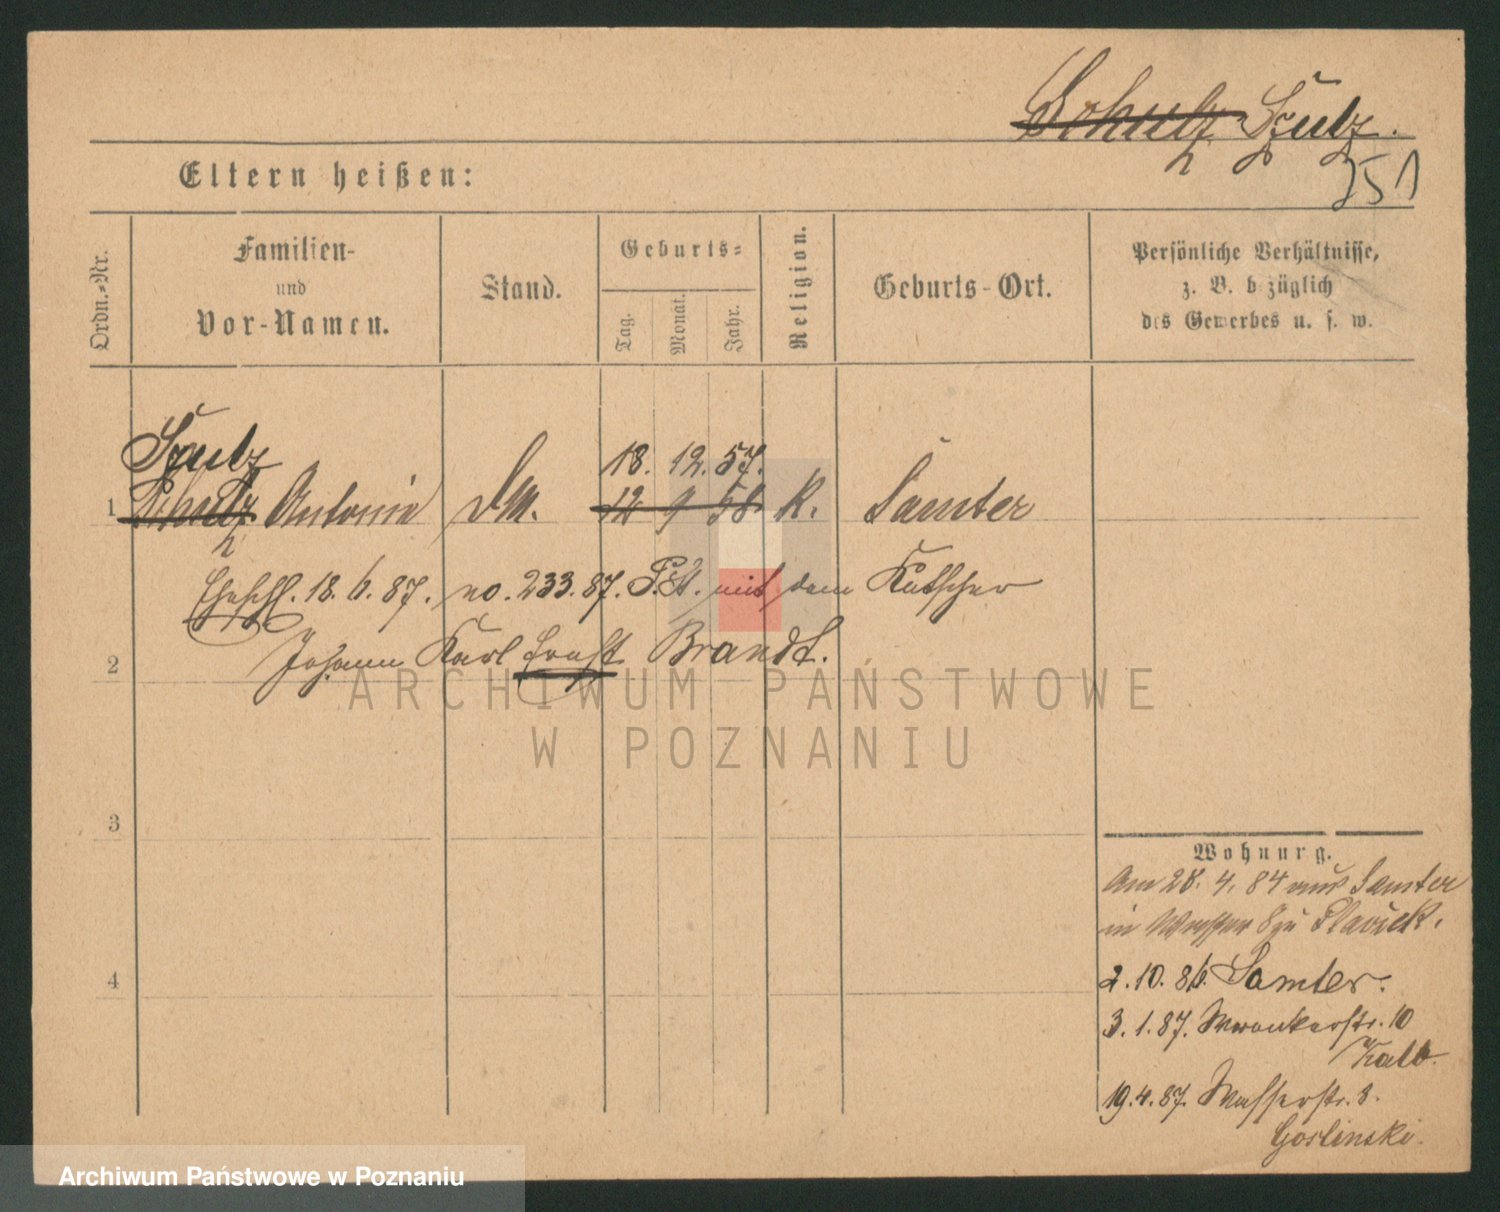 Schulz Szulz.
251
Eltern heißen:
Ordn.-Nr.
Familien-
und
Vor-Namen.
Stand.
Geburts-
Tag.
Monat.
Jahr.
Religion.
Geburts-Ort.
Persönliche Verhältnisse,
z. B. bezüglich
des Gewerbes u. s. w.
Szulz 18. 12. 57.
1 Schulz Antonie DM. 12 9 58 K. Samter
Eheschl. 18. 6. 87. no. 233. 87. P. St. mit dem Kutscher
2 Johann Karl Ernst Brandt.
ARCHIWUM PAŃSTWOWE
W POZNANIU
3
Wohnung.
Am 28. 4. 84 aus Samter
in 8 zu
4 2. 10. 86. Samter.
3. 1. 87. Wronkerstr. 10
Kalb.
19. 4. 87. Wasserstr. 8.
Goslinski.
Archiwum Państwowe w Poznaniu